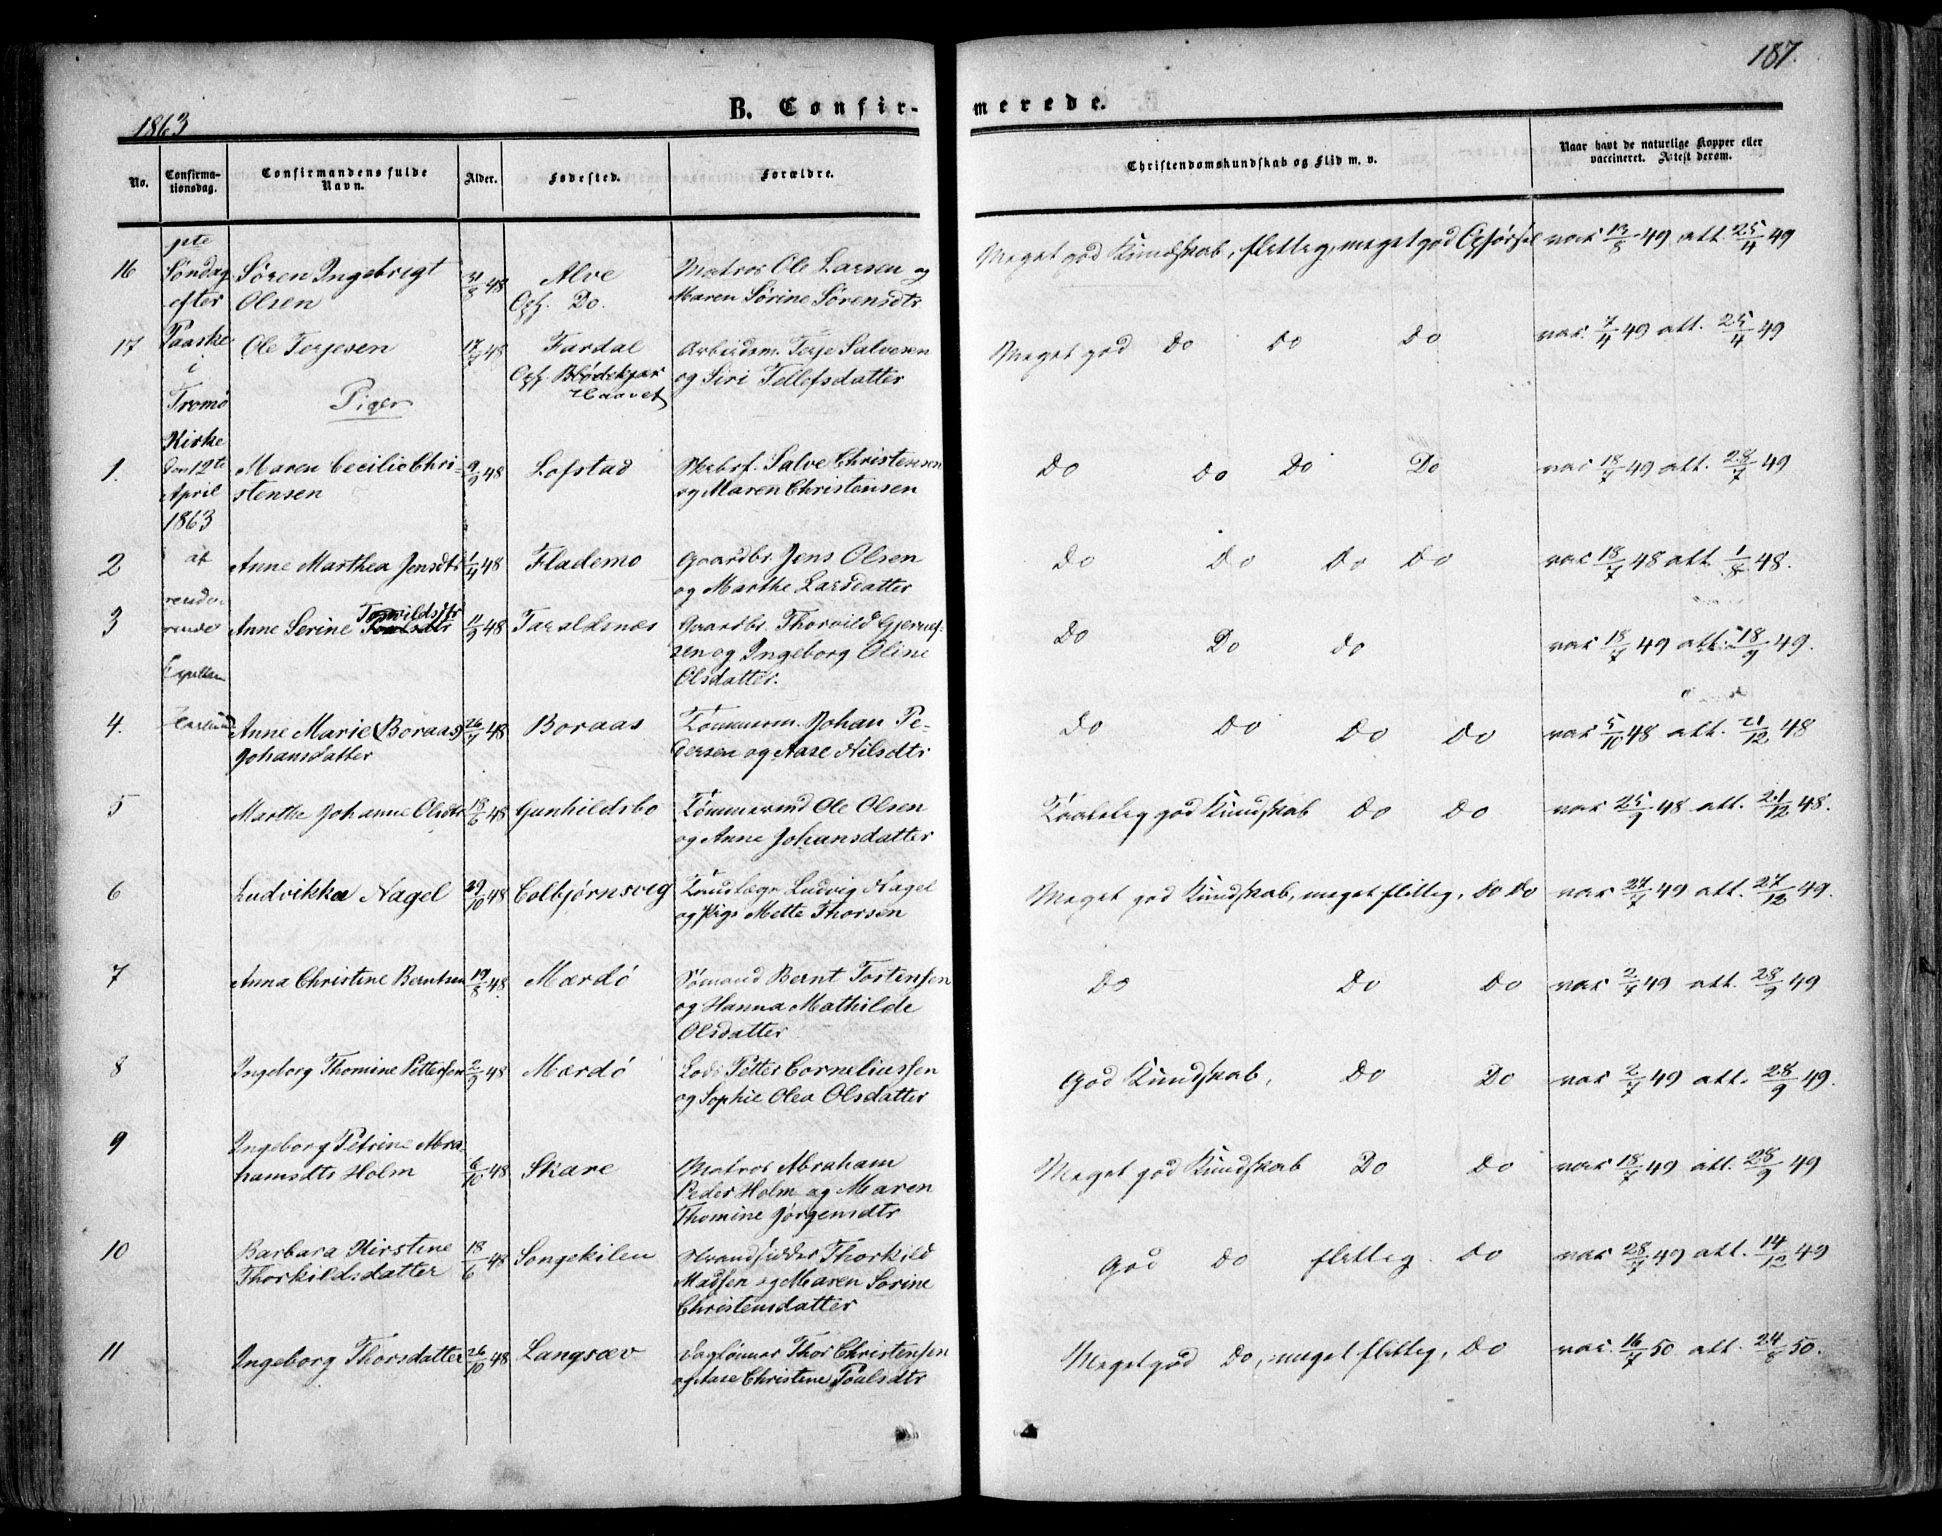 187.
1863
B. Confirmerede.
No.
Confirmationsdag.
Confirmandens fulde Navn.
Alder.
Fødested.
Forældre.
Christendomskundskab og Flid m. v.
Naar havt de naturlige Kopper eller vaccineret. Attest derom.
pte
Søndag
efter
Paaske
i
Tromø
Kirke
den 12te
April
1863
af
16 Søren Ingebrigt Olsen 48 Alve Opf. Do. Matros Ole Larsen og Maren Sørine Sørensdtr Meget god Kundskab, flittig, meget god Opførsel vac 49 att. 25/4 49
17 Ole Terjesen 17/7 48 Fardal Opf. Brødekjær Haavet Arbeidsm. Terje Salvesen og Siri Tellefsdatter Meget god Do Do Do vac. 7/4 49 att. 25/4 49
Piger
1. Maren Cecilie Christensen 9/9 48 Lofstad Salve Christensen og Maren Christensen Do Do Do Do vac 18/7 49 att. 28/7 49
2 Anne Marthea Jensdtr 1/4 48 Flademo Gaardbr. Jens Olsen og Marthe Larsdatter Do Do Do Do vac 18/7 48 att. 1/8 48.
3 Anne Serine Torvildsdtr 11/9 48 Taraldsnæs Gaardbr. Thorvild Gjerulfsen og Ingeborg Oline Olsdatter. Do Do Do vac 18/7 49 att. 18/9 49.
4. Anne Marie (Boraas) Johansdatter 26/7 48 Boraas Tømmerm. Johan Petersen og Aase Nilsdtr Do Do Do Do vac 5/10 48 att. 21/12 48
5 Marthe Johanne Olsdtr 18/6 48 Gunhildsbo Tømmermd Ole Olsen og Anne Johansdatter Taalelig god Kundskab Do Do vac 25/9 48 att. 21/12 48.
6 Ludvikka Nagel 29/10 48 Colbjørnsvig Ludvig Nagel og Pige Mette Thorsen Meget god Kundskab, meget flittig, Do Do vac 27/7 49 att. 27/12 49.
7 Anna Christine Berntsen 19/8 48. Mærdö Sømand Bernt Torstensen og Hanna Mathilde Olsdatter Do Do Do vac 2/7 49 att. 28/9 49
8 Ingeborg Thomine Pettersen 2/9 48 Mærdö Lods Petter Corneliussen og Sophie Olea Olsdatter God Kundskab, Do Do vac 2/7 49 att. 28/9 49.
9 Ingeborg Petrine Abrahamsdtr Holm 6/10 48 Skare Matros Abraham Peder Holm og Maren Thomine Jørgensdtr Meget god Kundskab Do Do vac 18/7 49 att. 28/9 49
10 Barbara Kirstine Thorkildsdatter 18/6 48 Songekilen Strandsidder Thorkild Madsen og Maren Sørine Christensdatter God Do flittig Do vac 28/7 49 att. 14/12 49
11 Ingeborg Thorsdatter 26/10 48 Langsæv Daglønner Thor Christensen og Aase Christine Poulsdtr Meget god Do, meget flittig, Do vac. 16/7 50 att. 24/8 50.